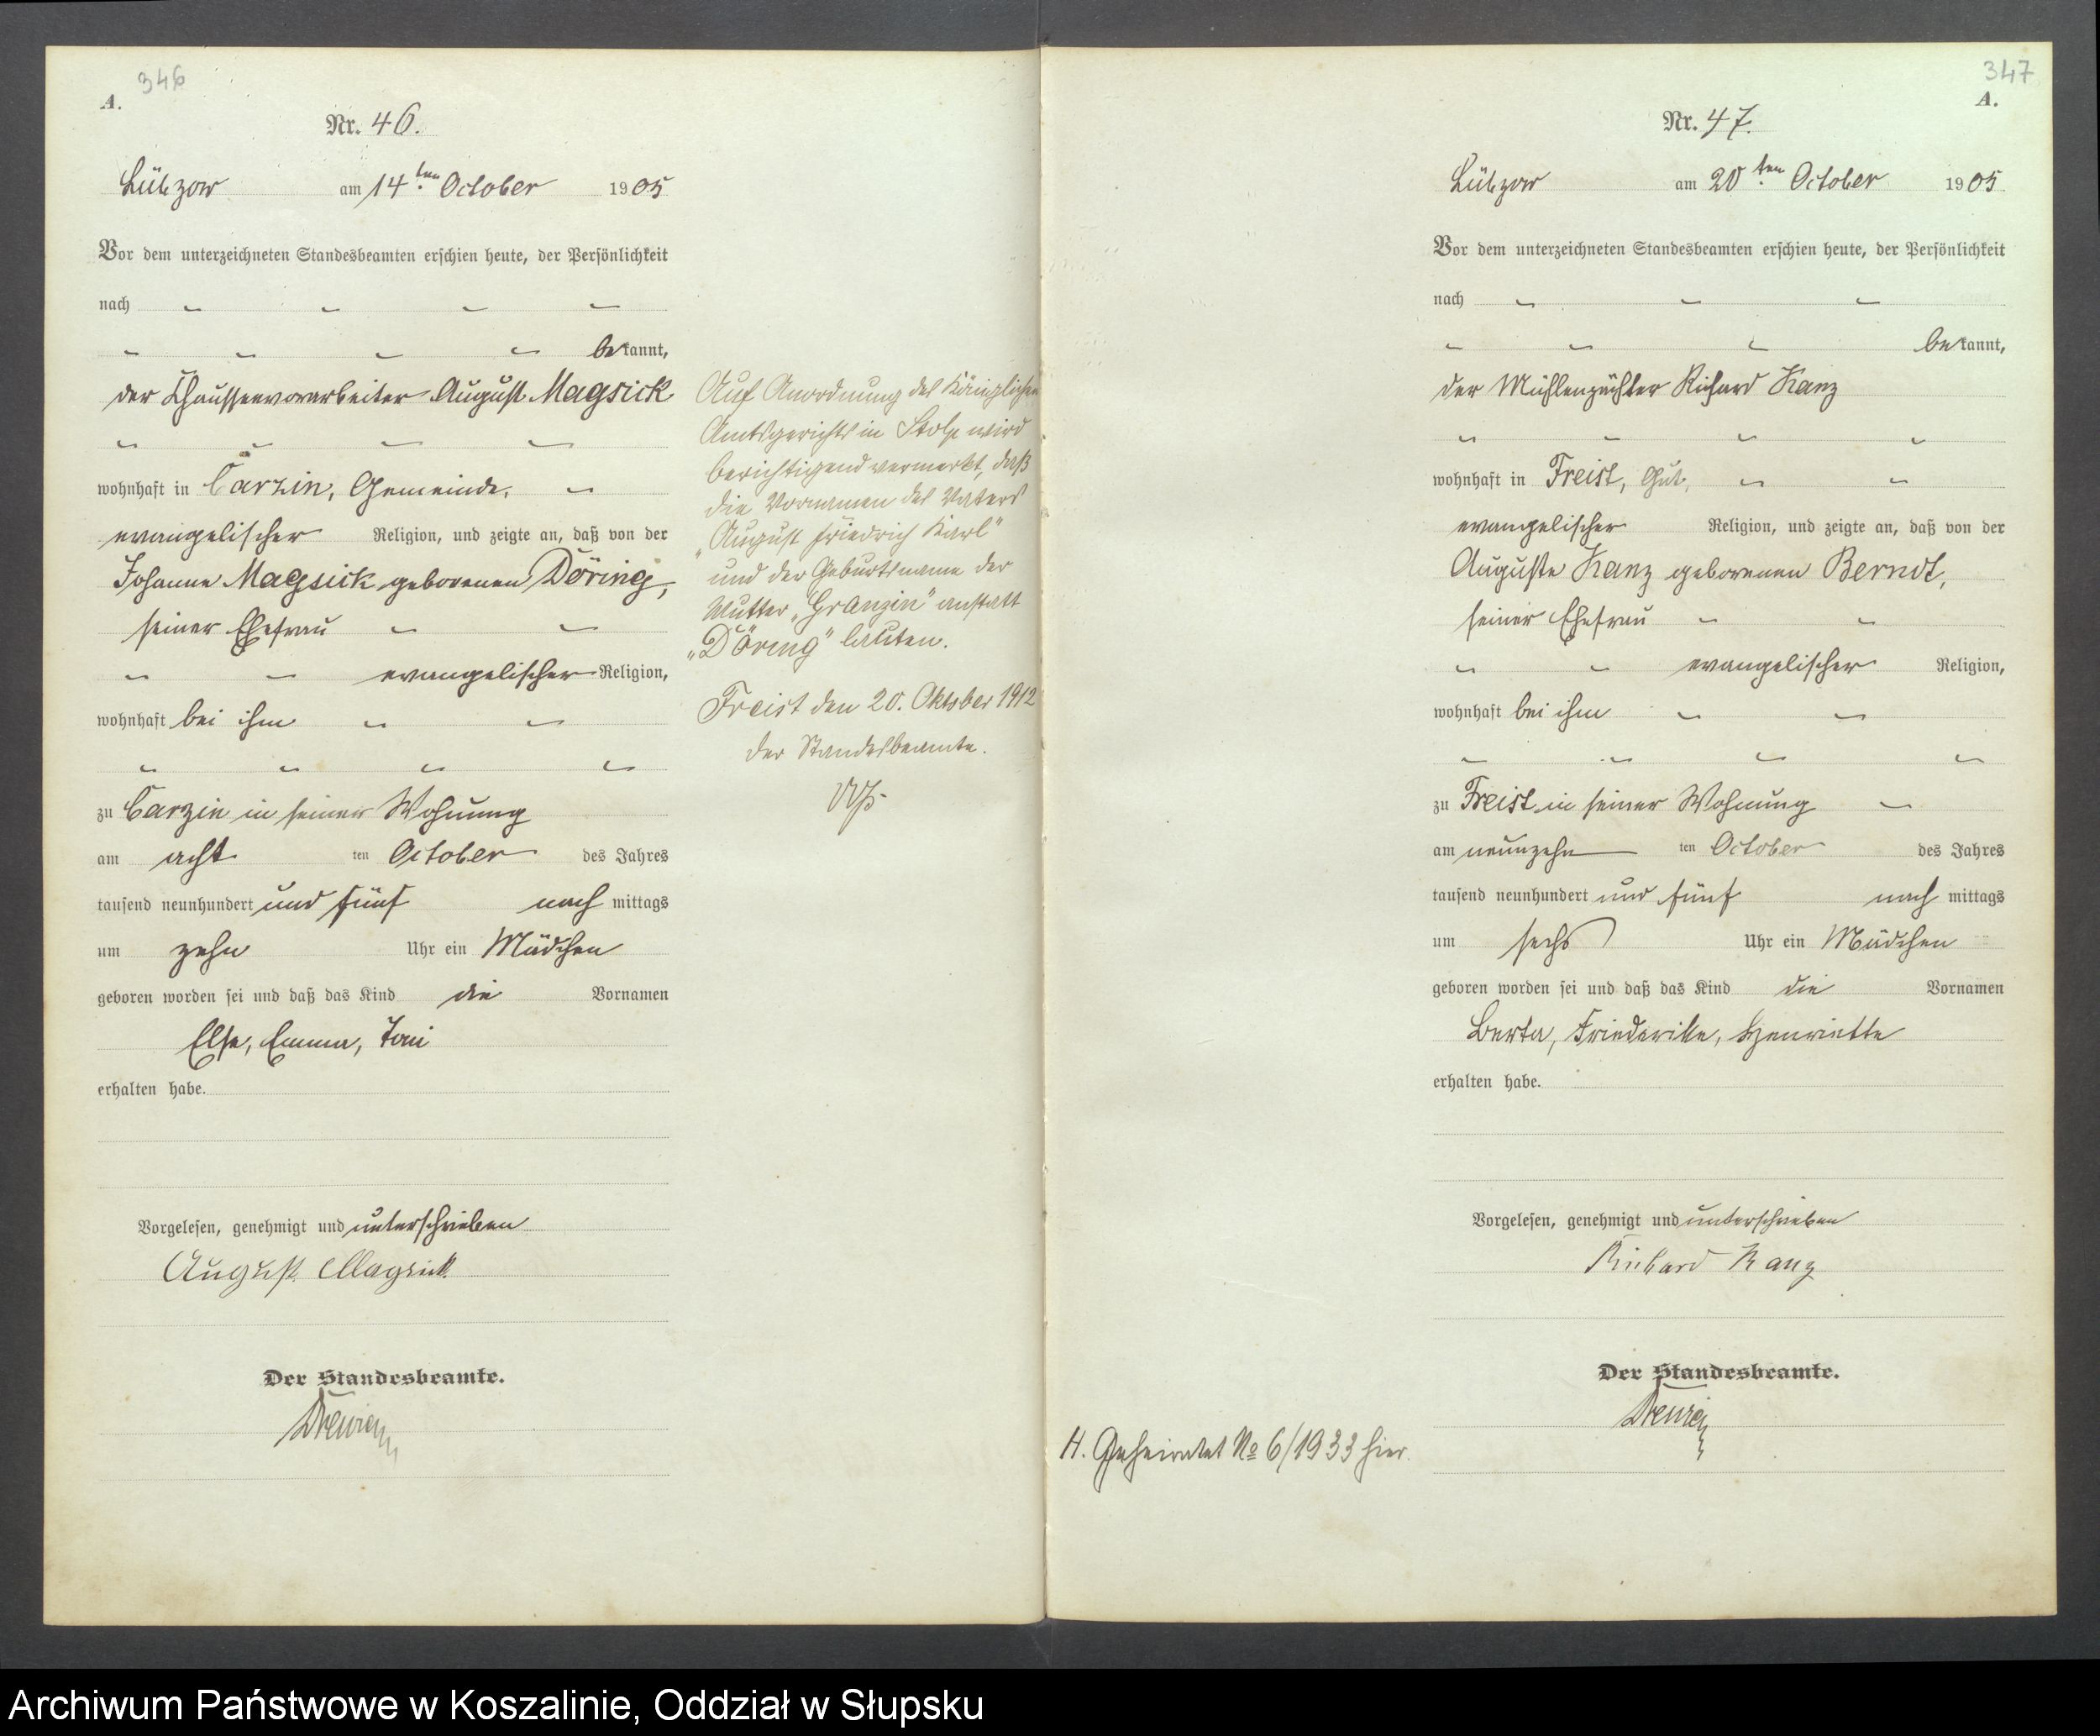 346
A.
Nr. 46.
Lübzow am 14ten October 1905
Vor dem unterzeichneten Standesbeamten erschien heute, der Persönlichkeit
nach
bekannt,
der Chausseevorarbeiter August Magsick
wohnhaft in Carzin, Gemeinde,
evangelischer Religion, und zeigte an, daß von der
Johanne Magsick geborenen Döring,
seiner Ehefrau
evangelischer Religion,
wohnhaft bei ihm
zu Carzin in seiner Wohnung
am acht ten October des Jahres
tausend neunhundert und fünf nach mittags
um zehn Uhr ein Mädchen
geboren worden sei und daß das Kind die Vornamen
Else, Emma, Toni
erhalten habe.
Vorgelesen, genehmigt und unterschrieben
August Magsick
Der Standesbeamte.
Auf Anordnung des Königlichen
Amtsgerichts in Stolp wird
berichtigend vermerkt, daß
die Vornamen des Vaters
„August Friedrich Karl"
und der Geburtsname der
Mutter „Granzin" anstatt
„Döring" lauten.
Freist den 20. Oktober 1912
Der Standesbeamte.
347
A.
Nr. 47.
Lübzow am 20ten October 1905
Vor dem unterzeichneten Standesbeamten erschien heute, der Persönlichkeit
nach
bekannt,
der Mühlenpächter Richard Kanz
wohnhaft in Freist, Gut,
evangelischer Religion, und zeigte an, daß von der
Auguste Kanz geborenen Berndt,
seiner Ehefrau
evangelischer Religion,
wohnhaft bei ihm
zu Freist in seiner Wohnung
am neunzehn ten October des Jahres
tausend neunhundert und fünf nach mittags
um sechs Uhr ein Mädchen
geboren worden sei und daß das Kind die Vornamen
Berta, Friederike, Henriette
erhalten habe.
Vorgelesen, genehmigt und unterschrieben
Richard Kanz
Der Standesbeamte.
H. Geheiratet No 6/1933 hier.
Archiwum Państwowe w Koszalinie, Oddział w Słupsku